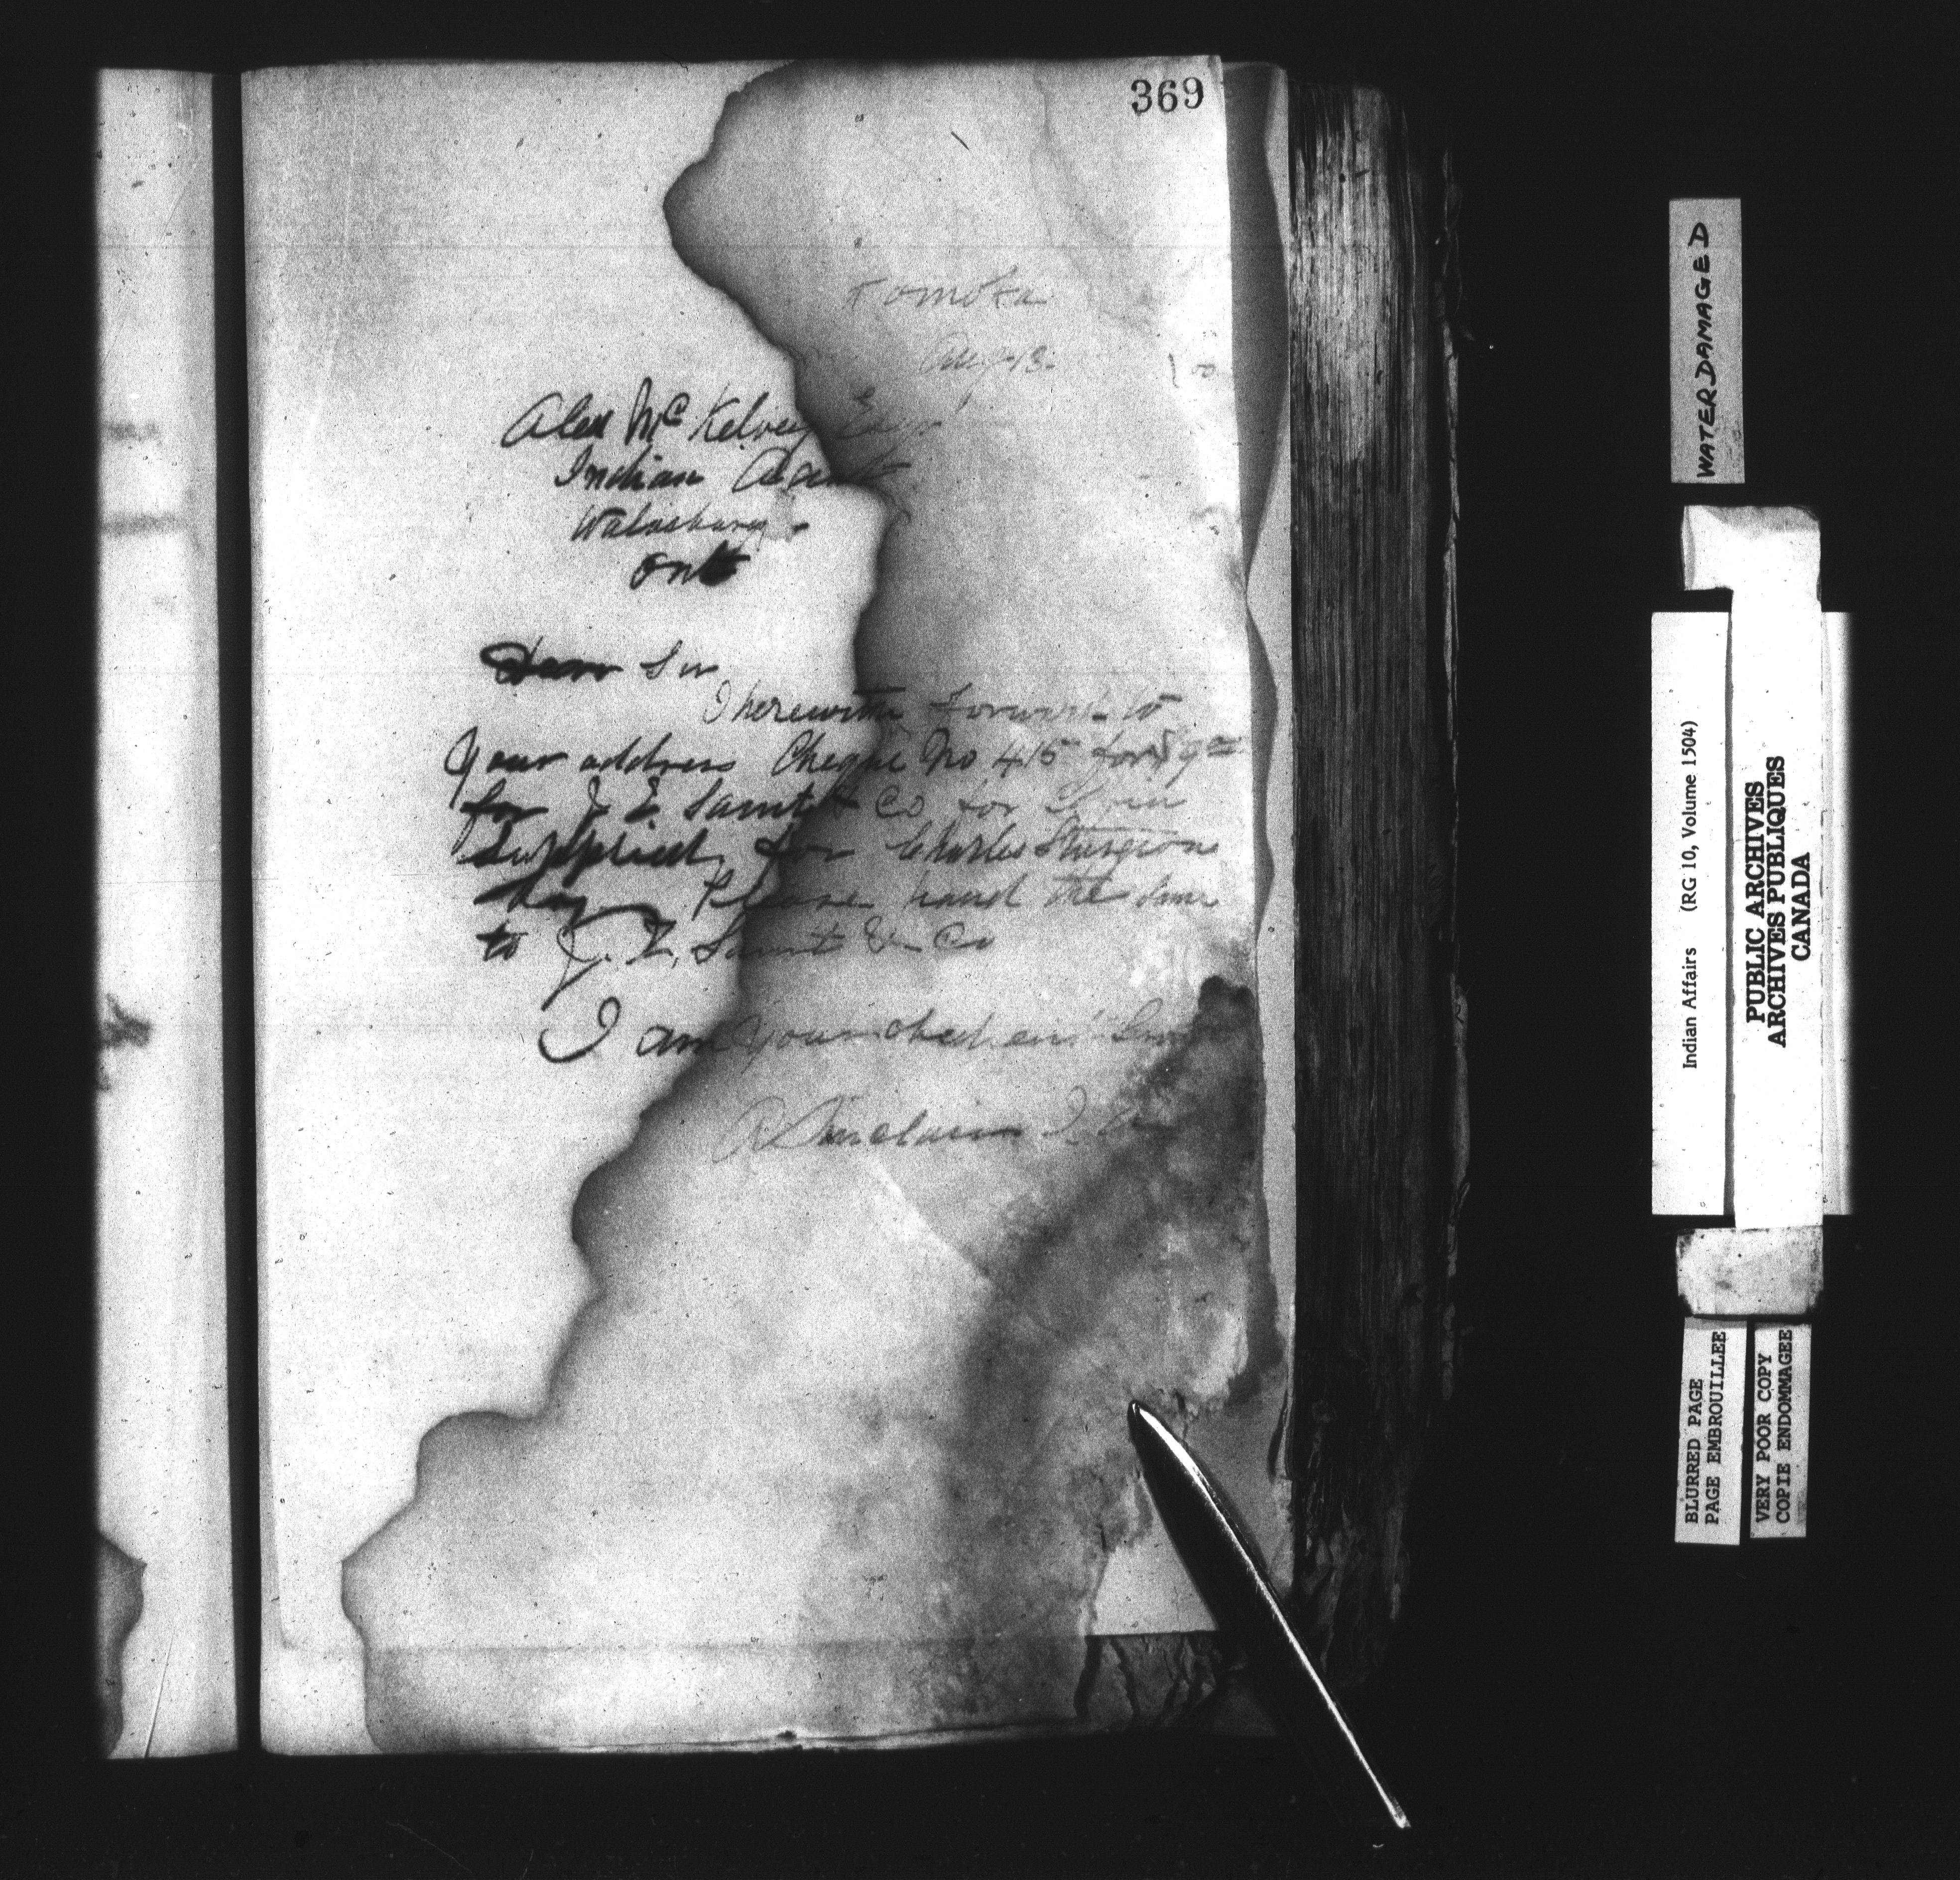 369
Komoka
Aug 13. 1 00
Alex McKelvey Esq
Indian Agent
Walaceburg
Ont
Dear Sir
I herewith forward to
Your address Cheque No 415 for $9 00
for J. E. Samt & Co for
supplied for Charles Sturgeon
Please hand the same
to J. E. Samt & Co
I am your obedient
R Sinclair I. A
WATERDAMAGED
Indian Affairs (RG 10, Volume 1504)
PUBLIC ARCHIVES
ARCHIVES PUBLIQUES
CANADA
BLURRED PAGE
PAGE EMBROUILLEE
VERY POOR COPY
COPIE ENDOMMAGEE